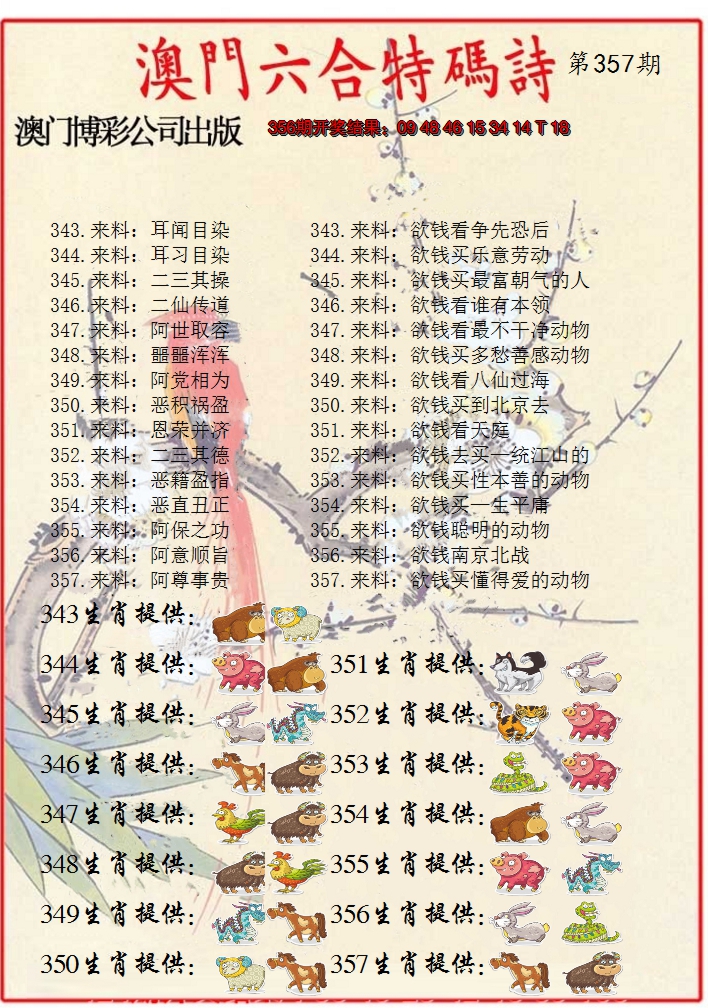 澳門六合特碼詩 第357期
澳门博彩公司出版 356期开奖结果：09 48 46 15 34 14 T 18
343.来料：耳闻目染 343.来料：欲钱看争先恐后
344.来料：耳习目染 344.来料：欲钱买乐意劳动
345.来料：二三其操 345.来料：欲钱买最富朝气的人
346.来料：二仙传道 346.来料：欲钱看谁有本领
347.来料：阿世取容 347.来料：欲钱看最不干净动物
348.来料：噩噩浑浑 348.来料：欲钱买多愁善感动物
349.来料：阿党相为 349.来料：欲钱看八仙过海
350.来料：恶积祸盈 350.来料：欲钱买到北京去
351.来料：恩荣并济 351.来料：欲钱看天庭
352.来料：二三其德 352.来料：欲钱去买一统江山的
353.来料：恶籍盈指 353.来料：欲钱买性本善的动物
354.来料：恶直丑正 354.来料：欲钱买一生平庸
355.来料：阿保之功 355.来料：欲钱聪明的动物
356.来料：阿意顺旨 356.来料：欲钱南京北战
357.来料：阿尊事贵 357.来料：欲钱买懂得爱的动物
343生肖提供：
344生肖提供： 351生肖提供：
345生肖提供： 352生肖提供：
346生肖提供： 353生肖提供：
347生肖提供： 354生肖提供：
348生肖提供： 355生肖提供：
349生肖提供： 356生肖提供：
350生肖提供： 357生肖提供：